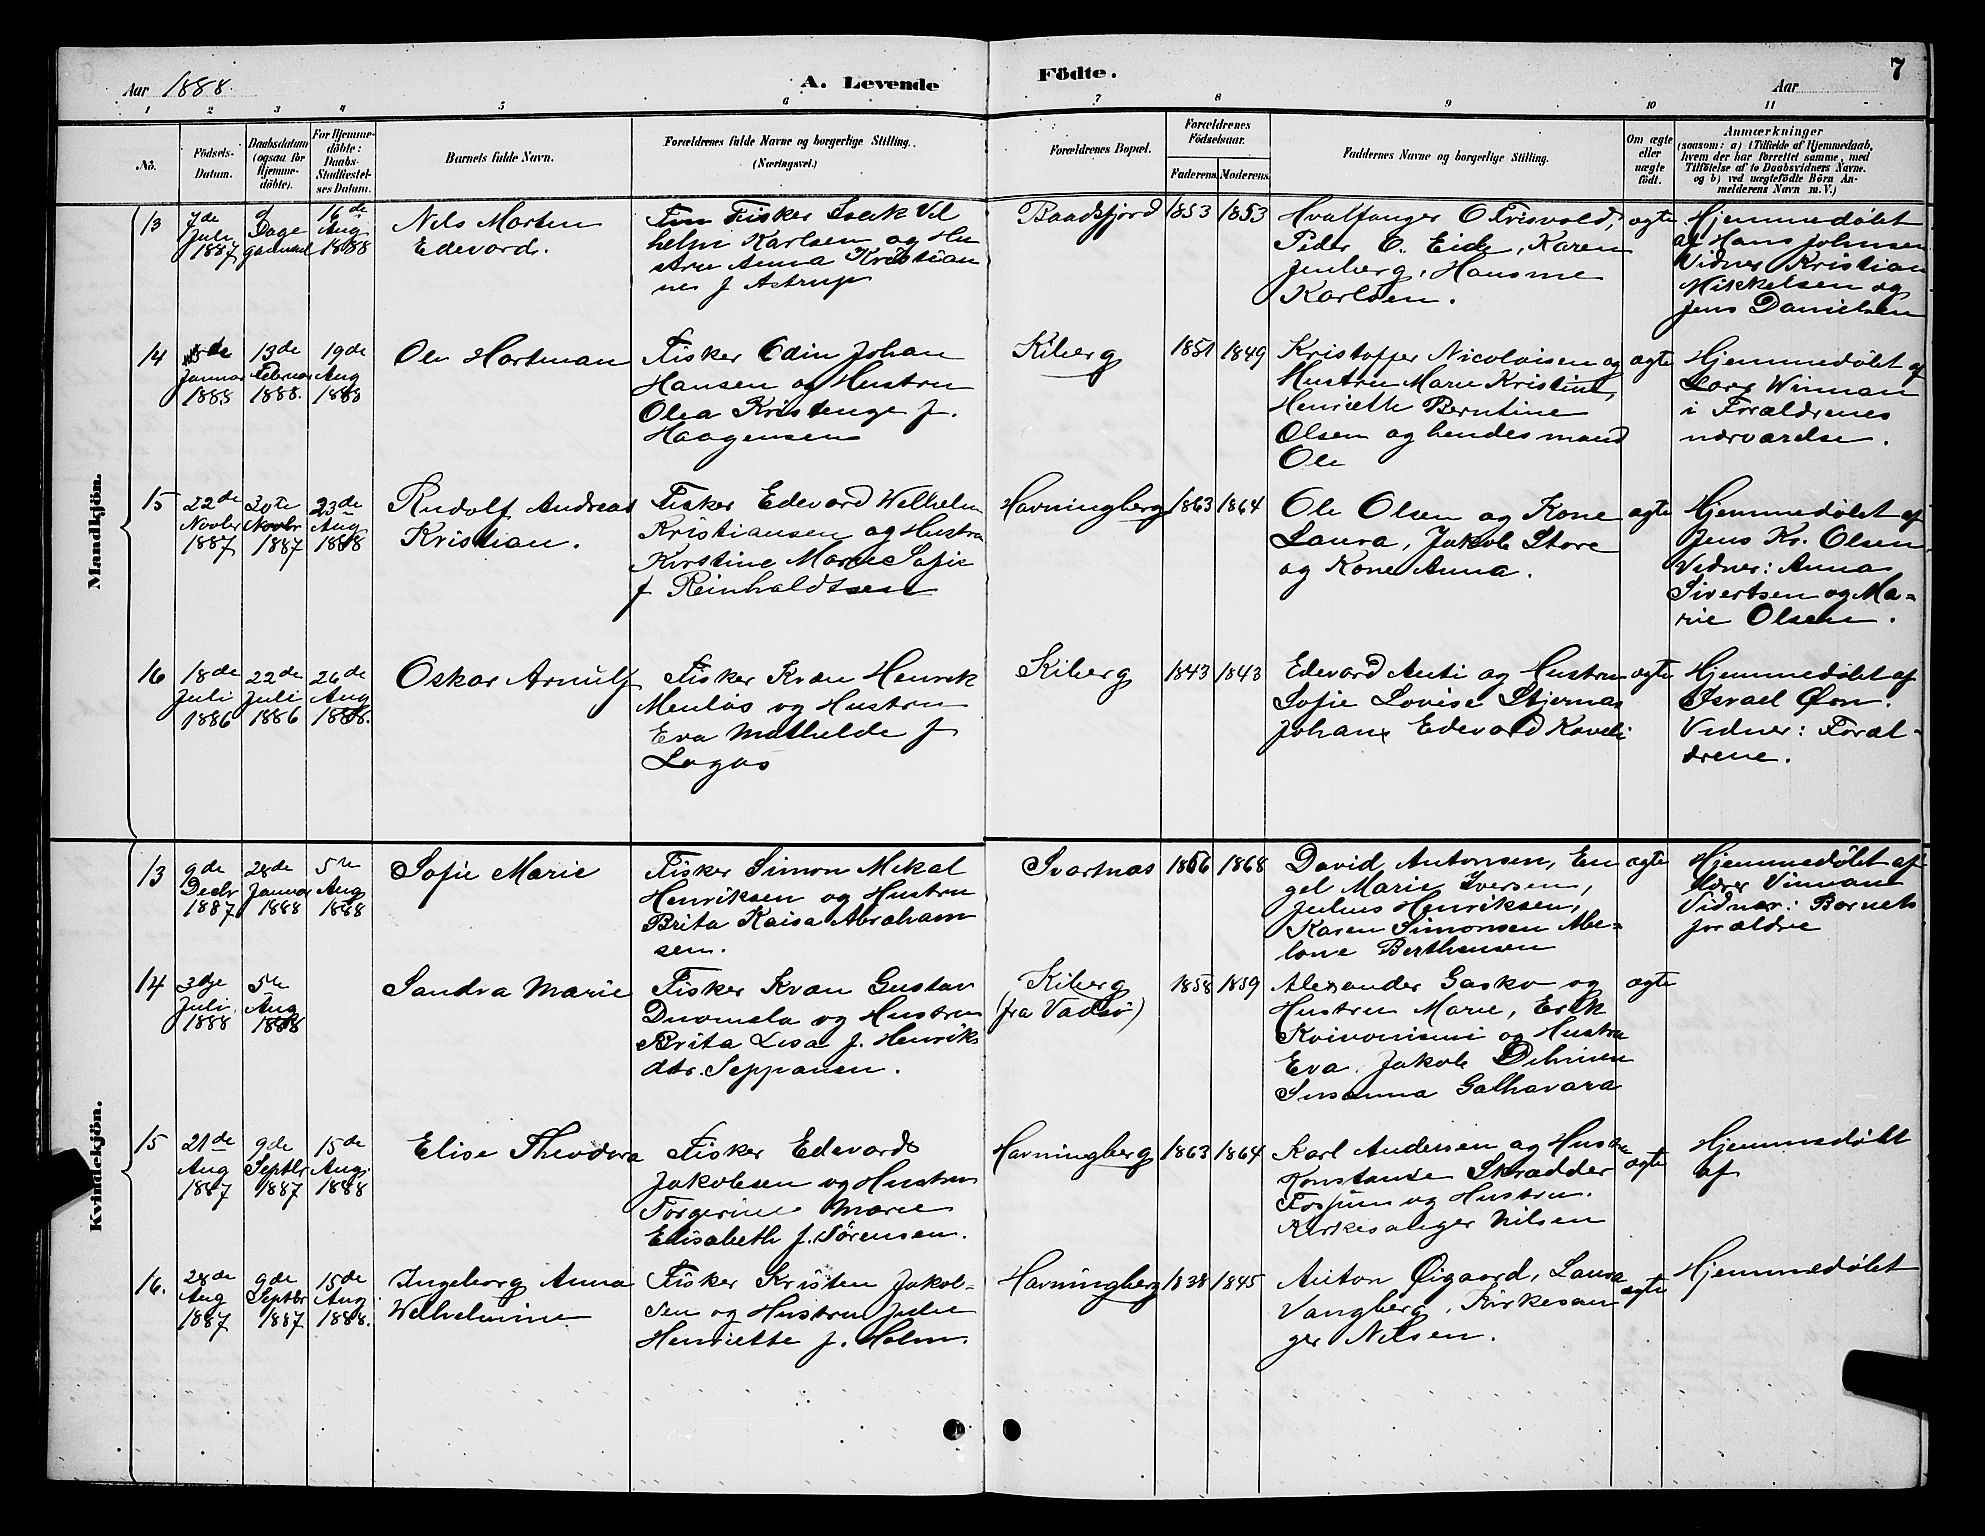 Aar 1888.
A. Levende
Födte.
Aar
7
1 2 3 4 5 6 7 8 9 10 11
No.
Födsels-
Datum.
Daabsdatum
(ogsaa for
Hjemme-
döbte).
For Hjemme-
döbte:
Daabs-
Stadfæstel-
ses Datum.
Barnets fulde Navn.
Forældrenes fulde Navne og borgerlige Stilling.
(Næringsvei.)
Forældrenes Bopæl.
Forældrenes
Födselsaar.
Faderens. Moderens.
Faddernes Navne og borgerlige Stilling.
Om ægte
eller
uægte
födt.
Anmærkninger
(saasom: a) i Tilfælde af Hjemmedaab,
hvem der har forrettet samme, med
Tilföielse af to Daabsvidners Navne,
og b) ved uægtefödte Börn An-
melderens Navn m.V.)
Mandkjön.
13
7de
Juli
1887
Dage
gammel
16de
Aug
1888
Nils Morten
Edevard.
Fisker Isak Vil
helm Karlsen og Hu
stru Anna Kristian
ne f Astrup
Baadsfjord
1853
1853
Hvalfanger O Trisvold,
Peder O. Eide, Karen
Jenberg, Hansine
Karlsen.
ægte
Hjemmedøbt
af Hans Johnsen
Vidner Kristian
Mikkelsen og
Jens Danielsen
14
Januar
1888
13de
Februar
1888.
19de
Aug
1888
Ole Hartman
Fisker Odin Johan
Hansen og Hustru
Olea Kristenge f.
Haagensen
Kiberg
1851
1849
Kristoffer Nicolaisen og
Hustru Marie Kristine,
Henriette Berntine
Olsen og hendes mand
Ole
ægte
Hjemmedøbt af
Lars Winnan
i Forældrenes
nærværelse.
15
22de
Novbr
1887
30te
Novbr
1887
23de
Aug
1888
Rudolf Andreas
Kristian.
Fisker Edevard Welhelm
Kristiansen og Hustru
Kirstine Marie Sofie
f Reinholdtsen
Havningberg
1863
1864
Ole Olsen og Kone
Laura, Jakob Store
og Kone Anna.
ægte
Hjemmedøbt af
Jens Kr. Olsen.
Vidner: Anna
Sivertsen og Ma-
rie Olsen.
16
18de
Juli
1886
22de
Juli
1886
26de
Aug
1888.
Oskar Arnulf
Fisker Kvæn Henrik
Menlös og Hustru
Eva Mathilde f
Lagas
Kiberg
1843
1843
Edevard Anti og Hustru
Sofie Lovise Stjerna
Johan Edevard Kaveli
ægte
Hjemmedøbt af
Israel Øen.
Vidner: Foræl-
drene.
Kvindekjön.
13
9de
Decbr
1887
28de
Januar
1888
5te
Aug
1888
Sofie Marie
Fisker Simon Mikal
Henriksen og Hustru
Brita Kaisa Abraham
sen.
Svartnæs
1866
1868
David Antonsen, En
gel Marie Iversen,
Julius Henriksen,
Karen Simonsen Abe-
lone Berthensen
ægte
Hjemmedøbt af
Lærer Vinnan
Vidner: Barnets
forældre
14
3dje
Juli
1888
5te
Aug
1888
Sandra Marie
Fisker Kvæn Gustav
Duomela og Hustru
Brita Lisa f. Henriks
dtr. Seppanen.
Kiberg
(fra Vadsö)
1858
1859
Alexander Gasko og
Hustru Marie, Erik
Koivoniemi og Hustru
Eva, Jakob
Susanna Galhavara
ægte
15
21de
Aug
1887
9de
Septbr
1887
15de
Aug.
1888
Elise Theodora
Fisker Edevard
Jakobsen og Hustru
Torgerine Marie
Elisabeth f. Sörensen.
Havningberg
1863
1864
Karl Andersen og Hustru
Konstanse Skrædder
Fosjum og Hustru.
Kirkesanger Nilsen
ægte
Hjemmedøbt
af
16.
28de
Aug
1887
9de
Septbr
1887
15de
Aug
1888.
Ingeborg Anna
Welhelmine
Fisker Kristen Jakob-
sen og Hustru Julie
Henriette f. Holm.
Havningberg
1838
1845
Anton Øigaard, Laura
Vangberg, Kirkesan
ger Nilsen.
ægte
Hjemmedøbt